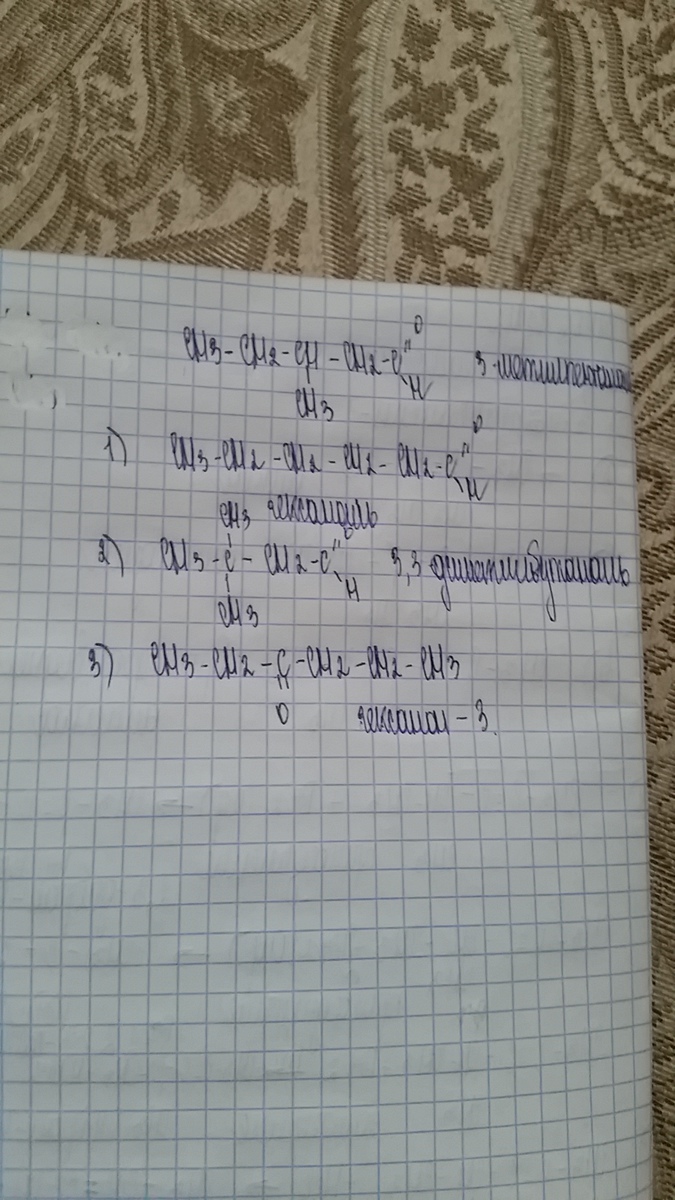 O
CH3-CH2-CH-CH2-C 3-метилпентаналь
H
CH3
O
1) CH3-CH2-CH2-CH2-CH2-C
H
CH3 гексаналь
O
2) CH3-C-CH2-C 3,3 диметилбутаналь
H
CH3
3) CH3-CH2-C-CH2-CH2-CH3
O гексанон-3.